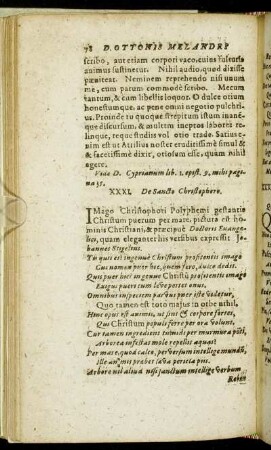 78 D. OTTONIS MELANDRI
scribo, aut etiam corpori vaco, cuius
animus sustinetur. Nihil audio, quod dixisse
pœniteat. Neminem reprehendo nisi unum
me, cum parum commodè scribo. Mecum
tantum, & cum libellis loquor. O dulce otium
honestumque, ac pene omni negotio pulchri-
us. Proinde tu quoque strepitum istum inané-
que discursum, & multum ineptos labores re-
linque, teque studiis vel otio trade. Satius e-
nim est ut Attilius noster eruditissimè simul &
& facetissimè dixit, otiosum esse, quam nihil
agere.
Vide D. Cyprianum lib. 1. epist. 9. mihi pagi-
na 35.
XXXI. De Sancto Christophoro.
IMago Christophori Polyphemi gestantis
Christum puerum per mare, pictura est ho-
minis Christiani, & præcipuè Doctoris Euange-
lici, quam eleganter his versibus expressit Jo-
hannes Stigelius.
Tu quis es? ingenuè Christum profitentis imago
Cui nomen
Quis puer hoc ingens? Christi, profitentis imago
Exigui puer
Omnibus
Quo tamen est toto maius in orbe nihil,
Hinc opus est animis, ut sint & corpore fortes,
Qui Christum populis ferre per ora volunt.
Cur tamen ingredienti tumidi per murmura ponti,
Arborea infestas mole repellis aquas?
Per mare, quod calco, perversum intellige mundum,
Arbore nil aliud nisi sanctum intellige verbum